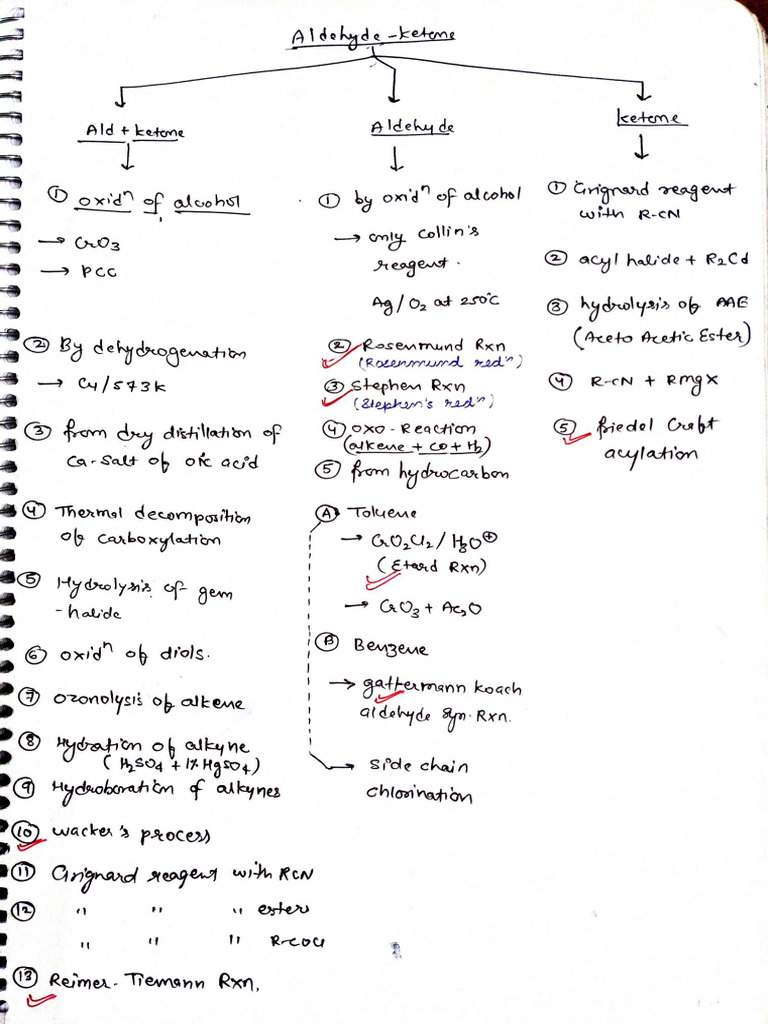 Aldehyde-ketone
Ald + ketone
① oxidⁿ of alcohol
→ CrO3
→ PCC
② By dehydrogenation
→ Cu/573K
③ from dry distillation of
Ca-salt of oic acid
④ Thermal decomposition
of carboxylation
⑤ Hydrolysis of gem
-halide
⑥ oxidⁿ of diols.
⑦ ozonolysis of alkene
⑧ Hydration of alkyne
(H2SO4 + 1% HgSO4)
⑨ Hydroboration of alkynes
⑩ wacker's process
⑪ Grignard reagent with RCN
⑫ " " " ester
" " " R-COCl
⑬ Reimer-Tiemann Rxn.
Aldehyde
① by oxidⁿ of alcohol
→ only Collin's
reagent.
Ag/O2 at 250°C
② Rosenmund Rxn
(Rosenmund redⁿ)
③ Stephen Rxn
(Stephen's redⁿ)
④ oxo-Reaction
(alkene + CO + H2)
⑤ from hydrocarbon
Ⓐ Toluene
→ CrO2Cl2/H3O⊕
(Etard Rxn)
→ CrO3 + Ac2O
Ⓑ Benzene
→ gattermann koach
aldehyde syn. Rxn.
→ side chain
chlorination
ketone
① Grignard reagent
with R-CN
② acyl halide + R2Cd
③ hydrolysis of AAE
(Aceto Acetic Ester)
④ R-CN + RMgX
⑤ friedel Craft
acylation